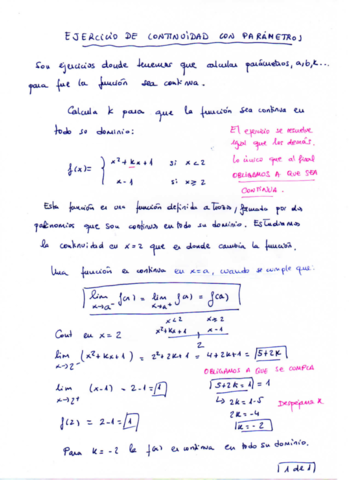 EJERCICIO DE CONTINUIDAD CON PARÁMETROS
Son ejercicios donde tenemos que calcular parámetros, a, b, k...
para que la función sea continua.
Calcula k para que la función sea continua en
todo su dominio:
f(x) = { x²+kx+1 si x<2
x-1 si x≥2
El ejercicio se resuelve
igual que los demás.
Lo único que al final
OBLIGAMOS A QUE SEA
CONTINUA.
Esta función es una función definida a trozos, formada por dos
polinomios que son continuos en todo su dominio. Estudiamos
la continuidad en x=2 que es donde cambia la función.
Una función es continua en x=a, cuando se cumple que:
lim x→a⁻ f(x) = lim x→a⁺ f(x) = f(a)
Cont en x=2
x<2 x≥2
x²+kx+1 x-1
2
lim x→2⁻ (x²+kx+1) = 2²+2k+1 = 4+2k+1 = 5+2k
OBLIGAMOS A QUE SE CUMPLA
lim x→2⁺ (x-1) = 2-1 = 1
f(2) = 2-1 = 1
5+2k = 1
↳ 2k = 1-5
2k = -4
k = -2
Despejamos k.
Para k=-2 la f(x) es continua en todo su dominio.
1 de 1